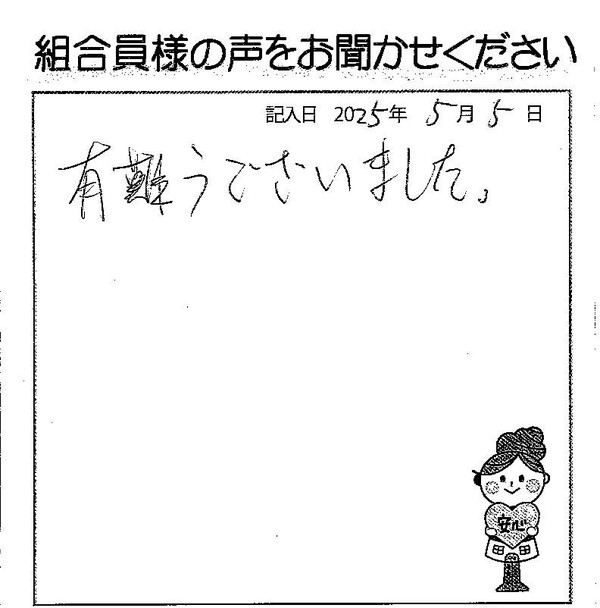 組合員様の声をお聞かせください
記入日 2025年 5月 5日
有難うございました。
安心